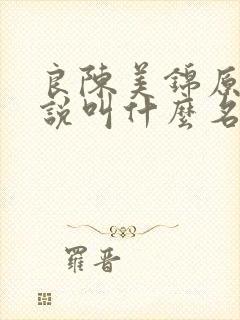 良陳美錦原
說叫什麼名
羅晋